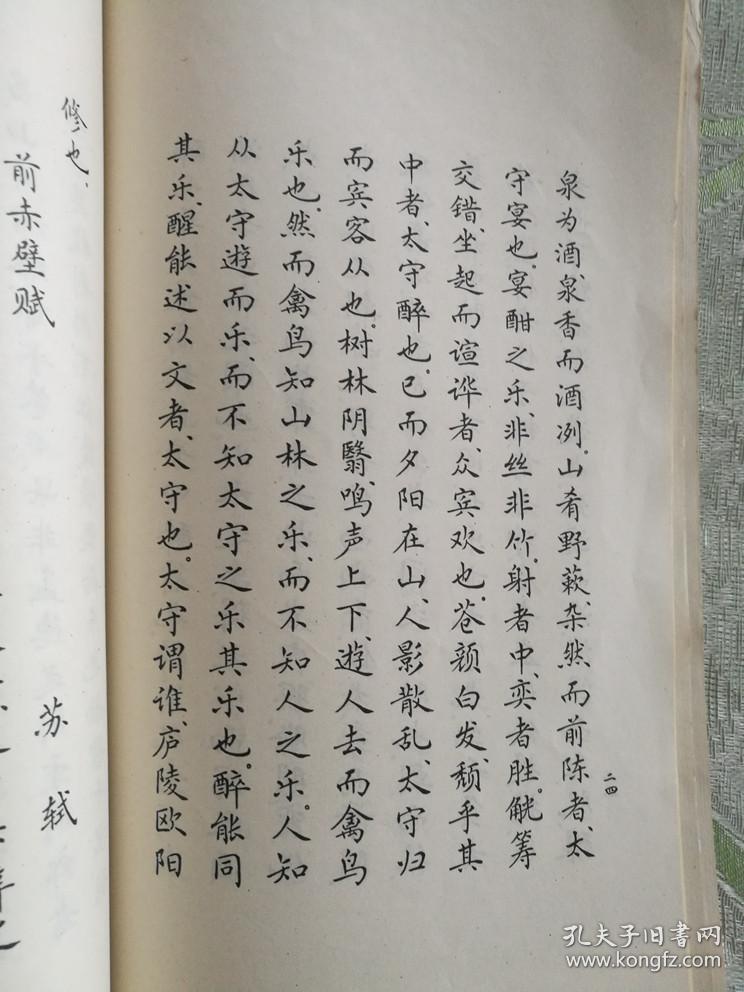 泉为酒、泉香而酒冽。山肴野蔌、杂然而前陈者、太
守宴也。宴酣之乐、非丝非竹。射者中、奕者胜。觥筹
交错、坐起而諠哗者、众宾欢也。苍颜白发、颓乎其
中者、太守醉也。已而夕阳在山、人影散乱、太守归
而宾客从也。树林阴翳、鸣声上下、遊人去而禽鸟
乐也。然而禽鸟知山林之乐、而不知人之乐。人知
从太守遊而乐、而不知太守之乐其乐也。醉能同
其乐、醒能述以文者、太守也。太守谓谁、庐陵欧阳
二四
修也、
前赤壁赋
苏轼
孔夫子旧书网
www.kongfz.com